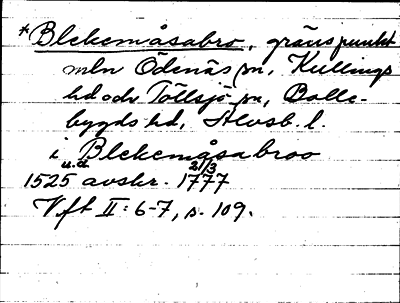 *Blekemåsabro, gränspunkt
mln Ödenäs sn, Kullings
hd och Töllsjö sn, Bolle-
bygds hd, Älvsb. l.
i Blekemåsabroo
u.d. 21/3
1525 avskr. 1777
Vft II: 6-7, s. 109.